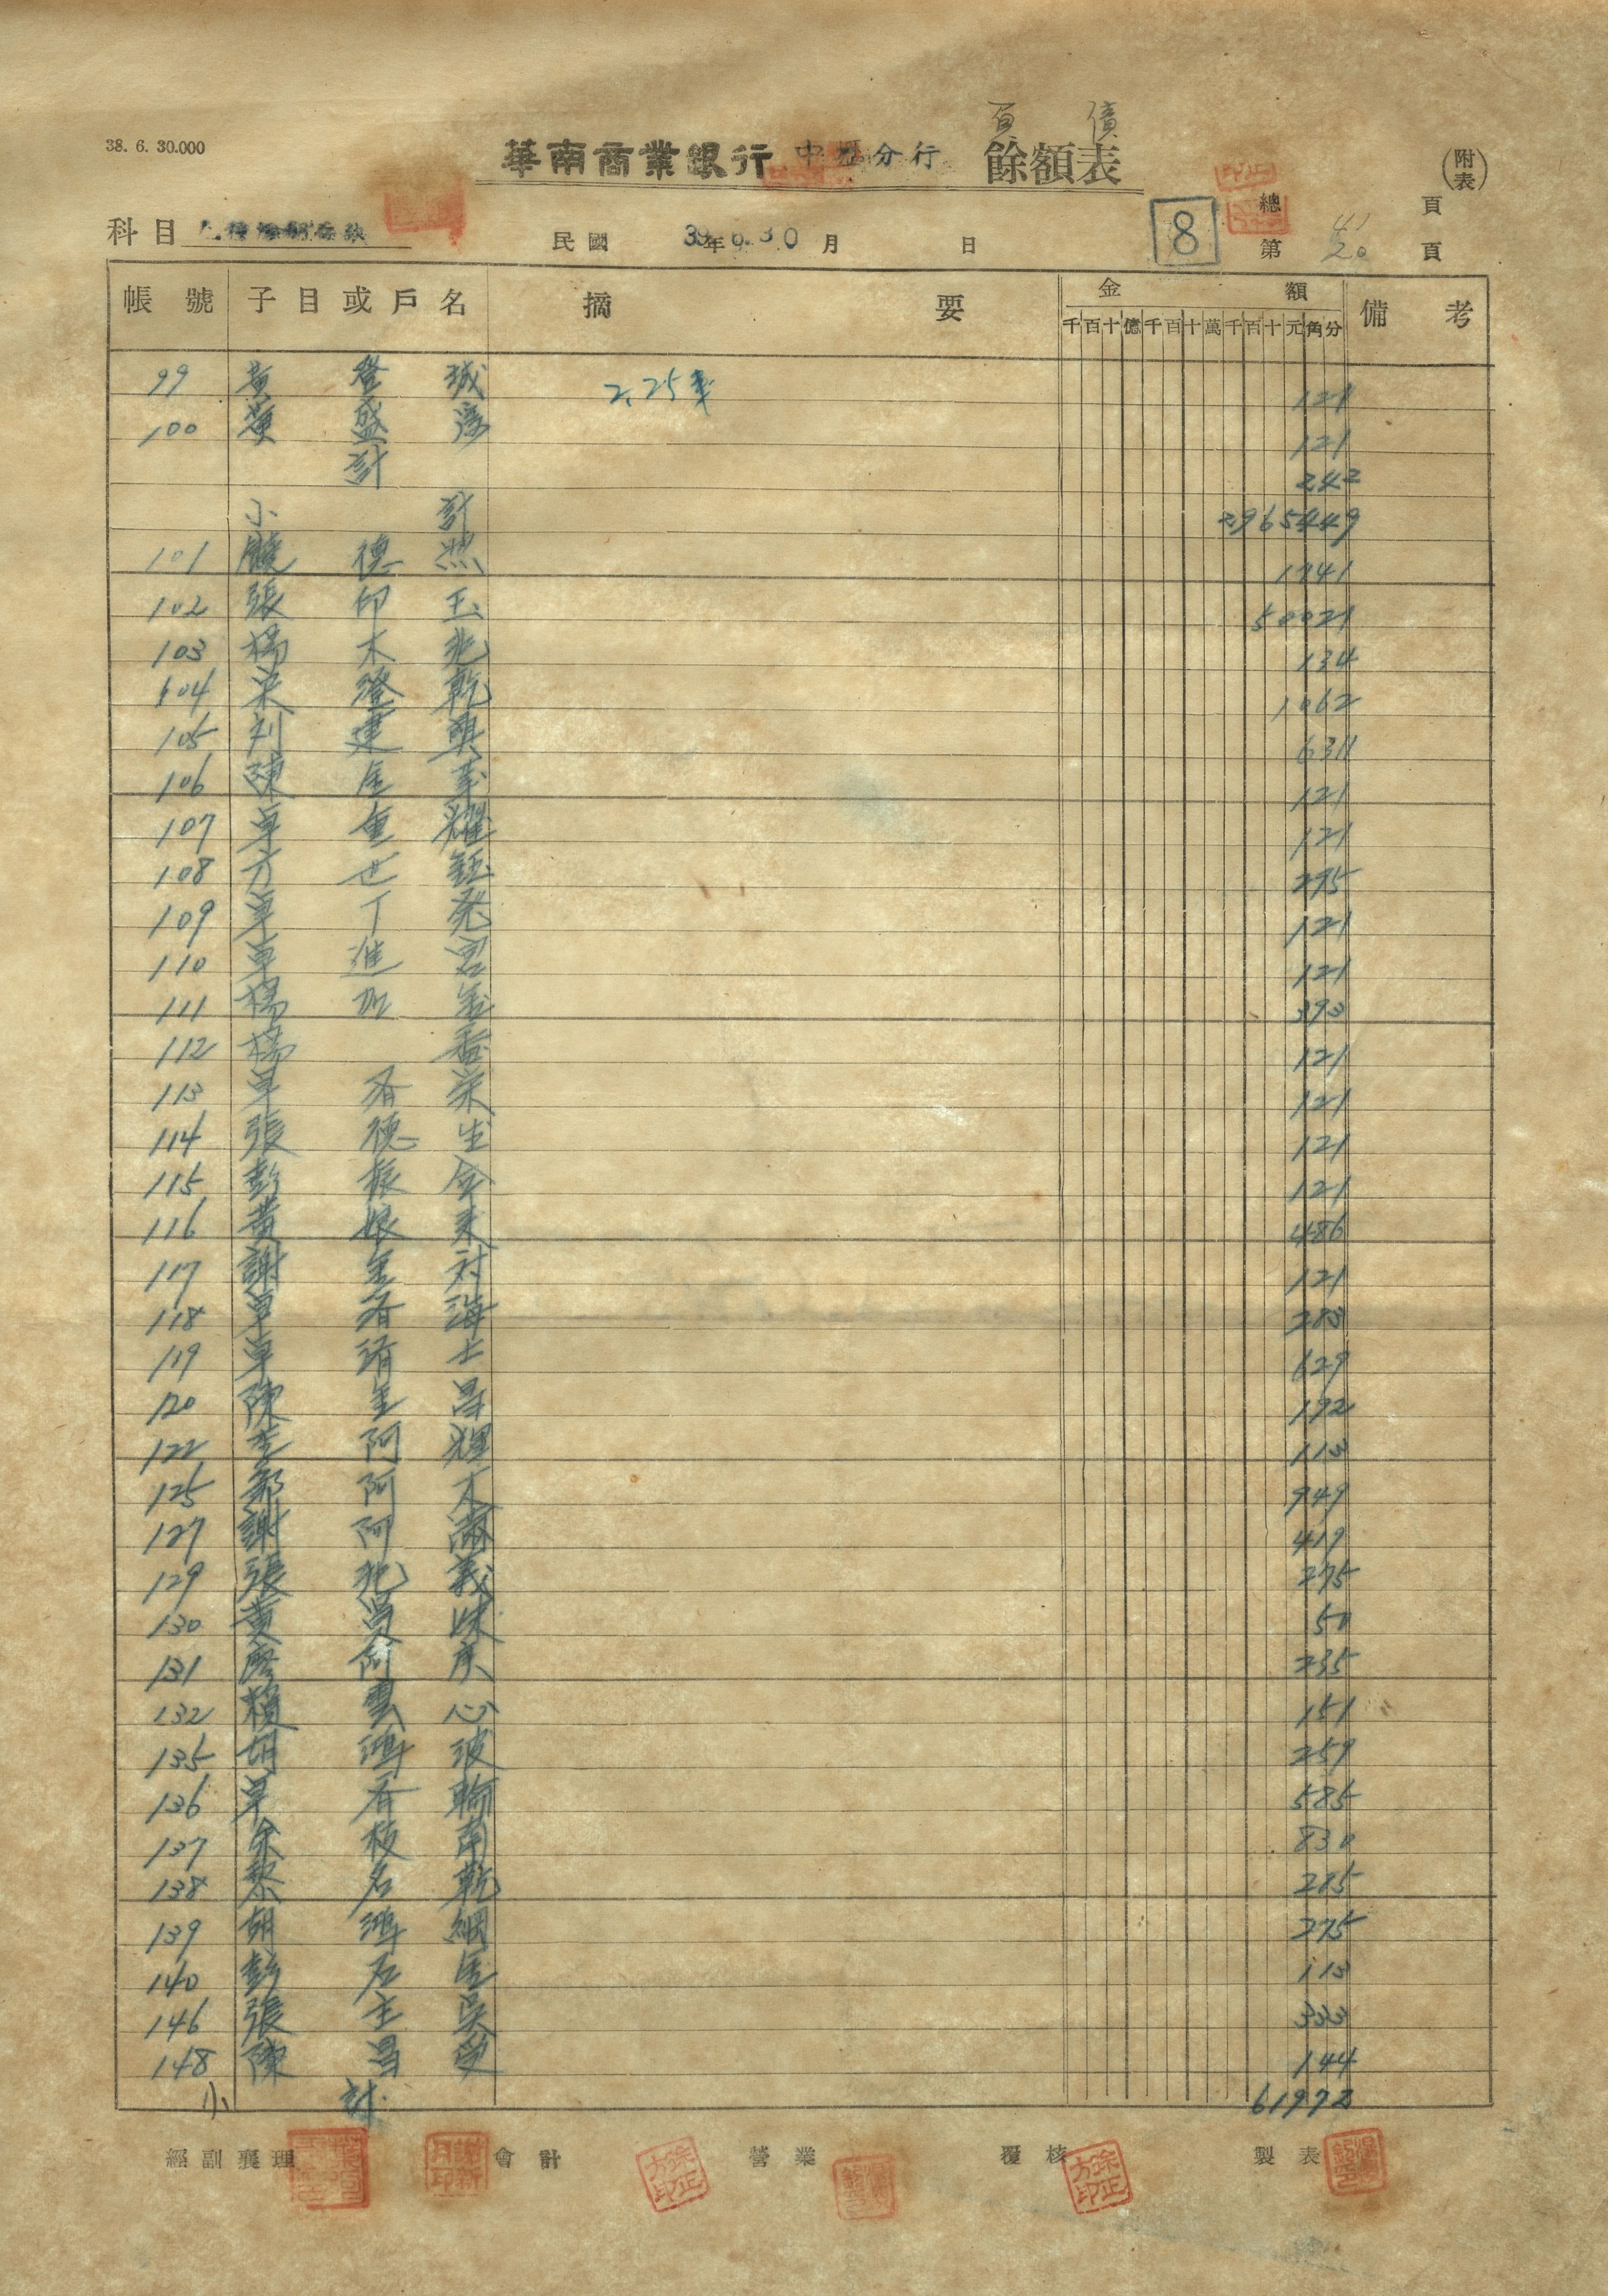 38. 6. 30.000
負債
華南商業銀行 中壢分行 餘額表
(附表)
科目
民國 39年6.30月 日
8
總 41 頁
第 20 頁
帳號 子目或戶名 摘要 金額 備考
千百十億千百十萬千百十元角分
99 黃登城 2.25 121
100 黃盛 121
計 242
小計 2965449
101 饒德照 1741
102 張印玉 50021
103 楊木 134
104 梁澄乾 1062
105 刘建興 6311
106 陳金 121
107 卓重耀 121
108 方世鈺 275
109 卓丁発 121
110 卓進 121
111 楊 393
112 楊香 121
113 卓看栄 121
114 張德生 121
115 彭振金 121
116 黃娘來 486
117 謝金対 121
118 卓看海 283
119 卓清士 629
120 陳金昌 192
122 李阿耀 113
125 郭阿木 949
127 謝阿滿 419
129 張義 275
130 黃妹 50
131 廖阿庚 235
132 賴雲心 151
135 胡鴻波 259
136 卓看輪 585
137 余枝南 830
138 黎名乾 285
139 胡鴻網 275
140 彭石金 113
146 張主吳 333
148 陳昌 144
小計 61972
經副襄理 會計 營業 覆核 製表